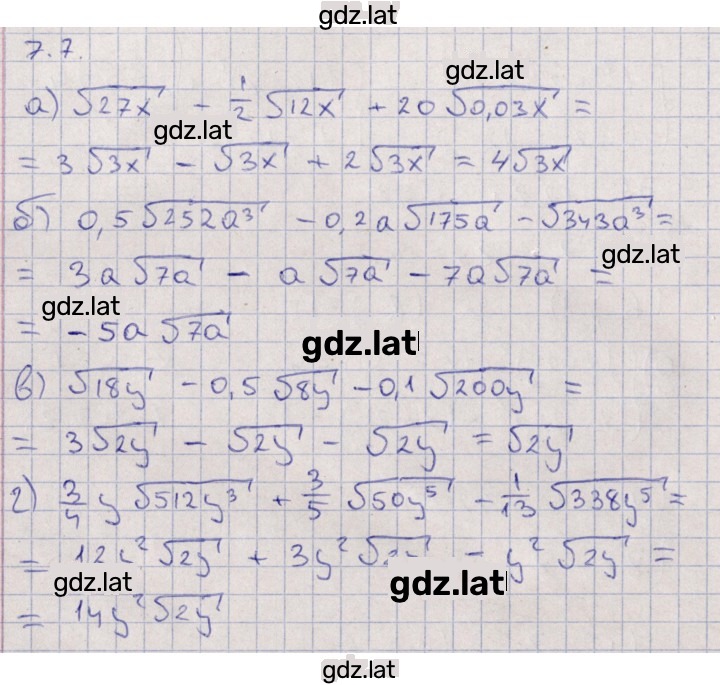 gdz.lat
7.7.
gdz.lat
а) √27x − 1/2 √12x + 20 √0,03x =
gdz.lat
= 3√3x − √3x + 2√3x = 4√3x
б) 0,5√252a³ − 0,2a√175a − √343a³ =
gdz.lat
= 3a√7a − a√7a − 7a√7a =
gdz.lat
= −5a√7a
gdz.lat
в) √18y − 0,5√8y − 0,1√200y =
= 3√2y − √2y − √2y = √2y
г) 3/4 y√512y³ + 3/5 √50y⁵ − 1/13 √338y⁵ =
= 12y²√2y + 3y²√2y − y²√2y =
gdz.lat gdz.lat
= 14y²√2y
gdz.lat